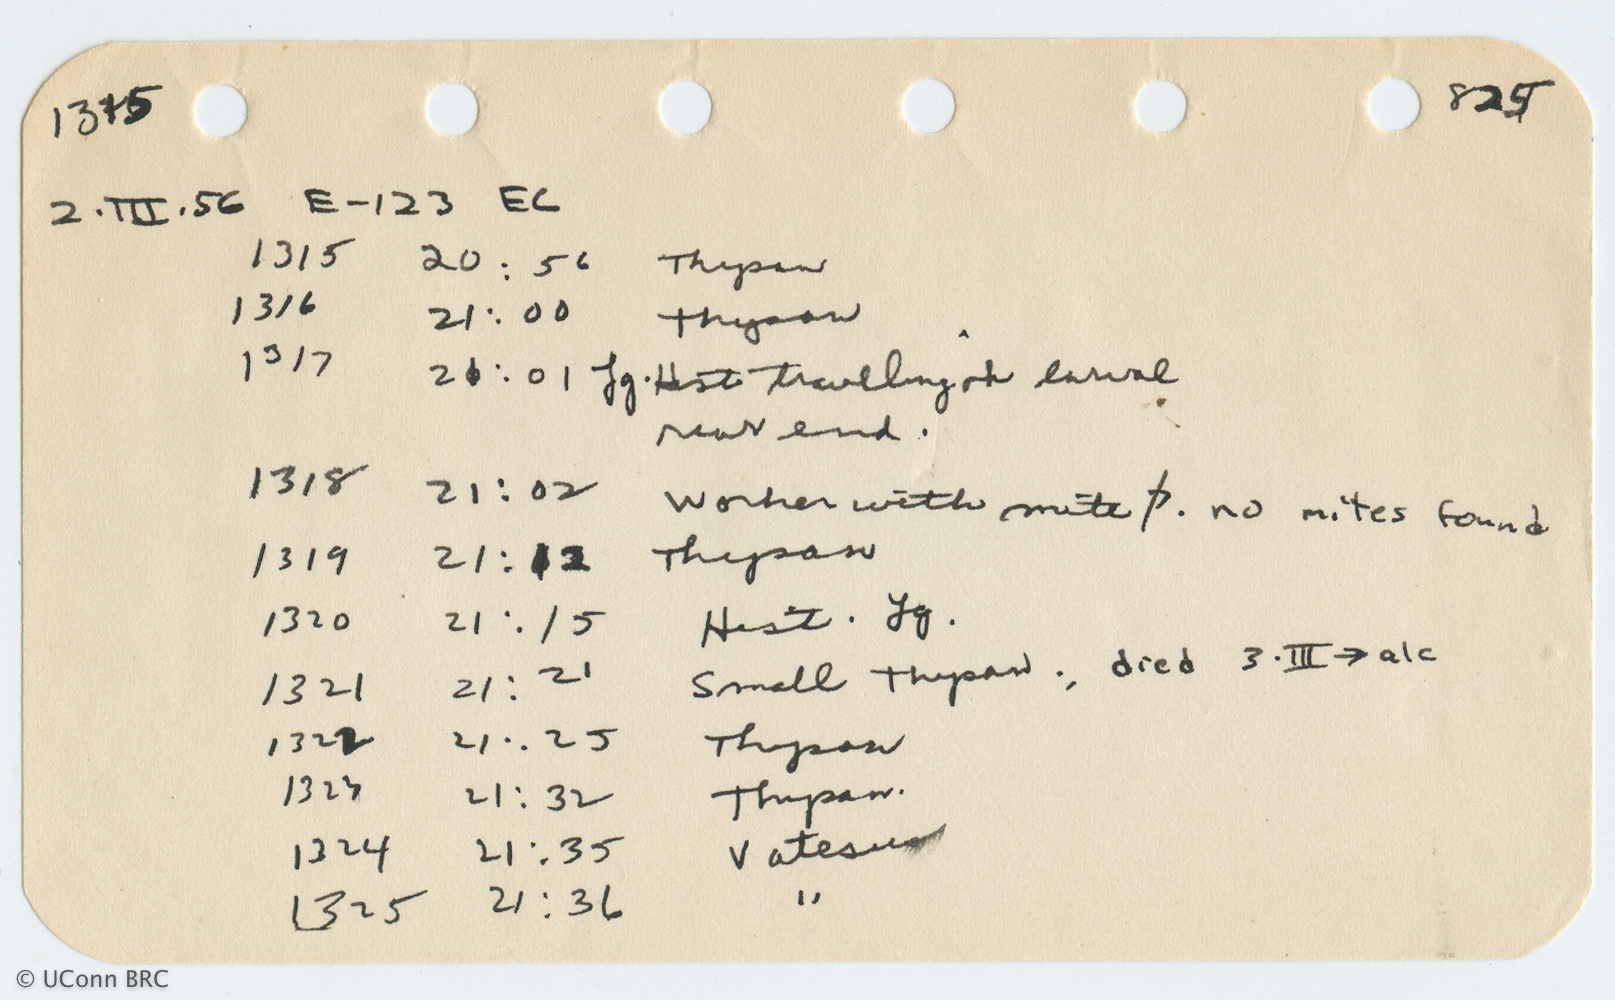 1315 825
2.III.56 E-123 EC
1315 20:56 Thysan
1316 21:00 Thysan
1317 21:01 Lg. Hist travelling in larval
rear end.
1318 21:02 Worker with mite p. no mites found
1319 21:12 Thysan
1320 21:15 Hist. Lg.
1321 21:21 Small Thysan., died 3.III→alc
1322 21:25 Thysan
1323 21:32 Thysan.
1324 21:35 Vatesus
1325 21:36 "
© UConn BRC